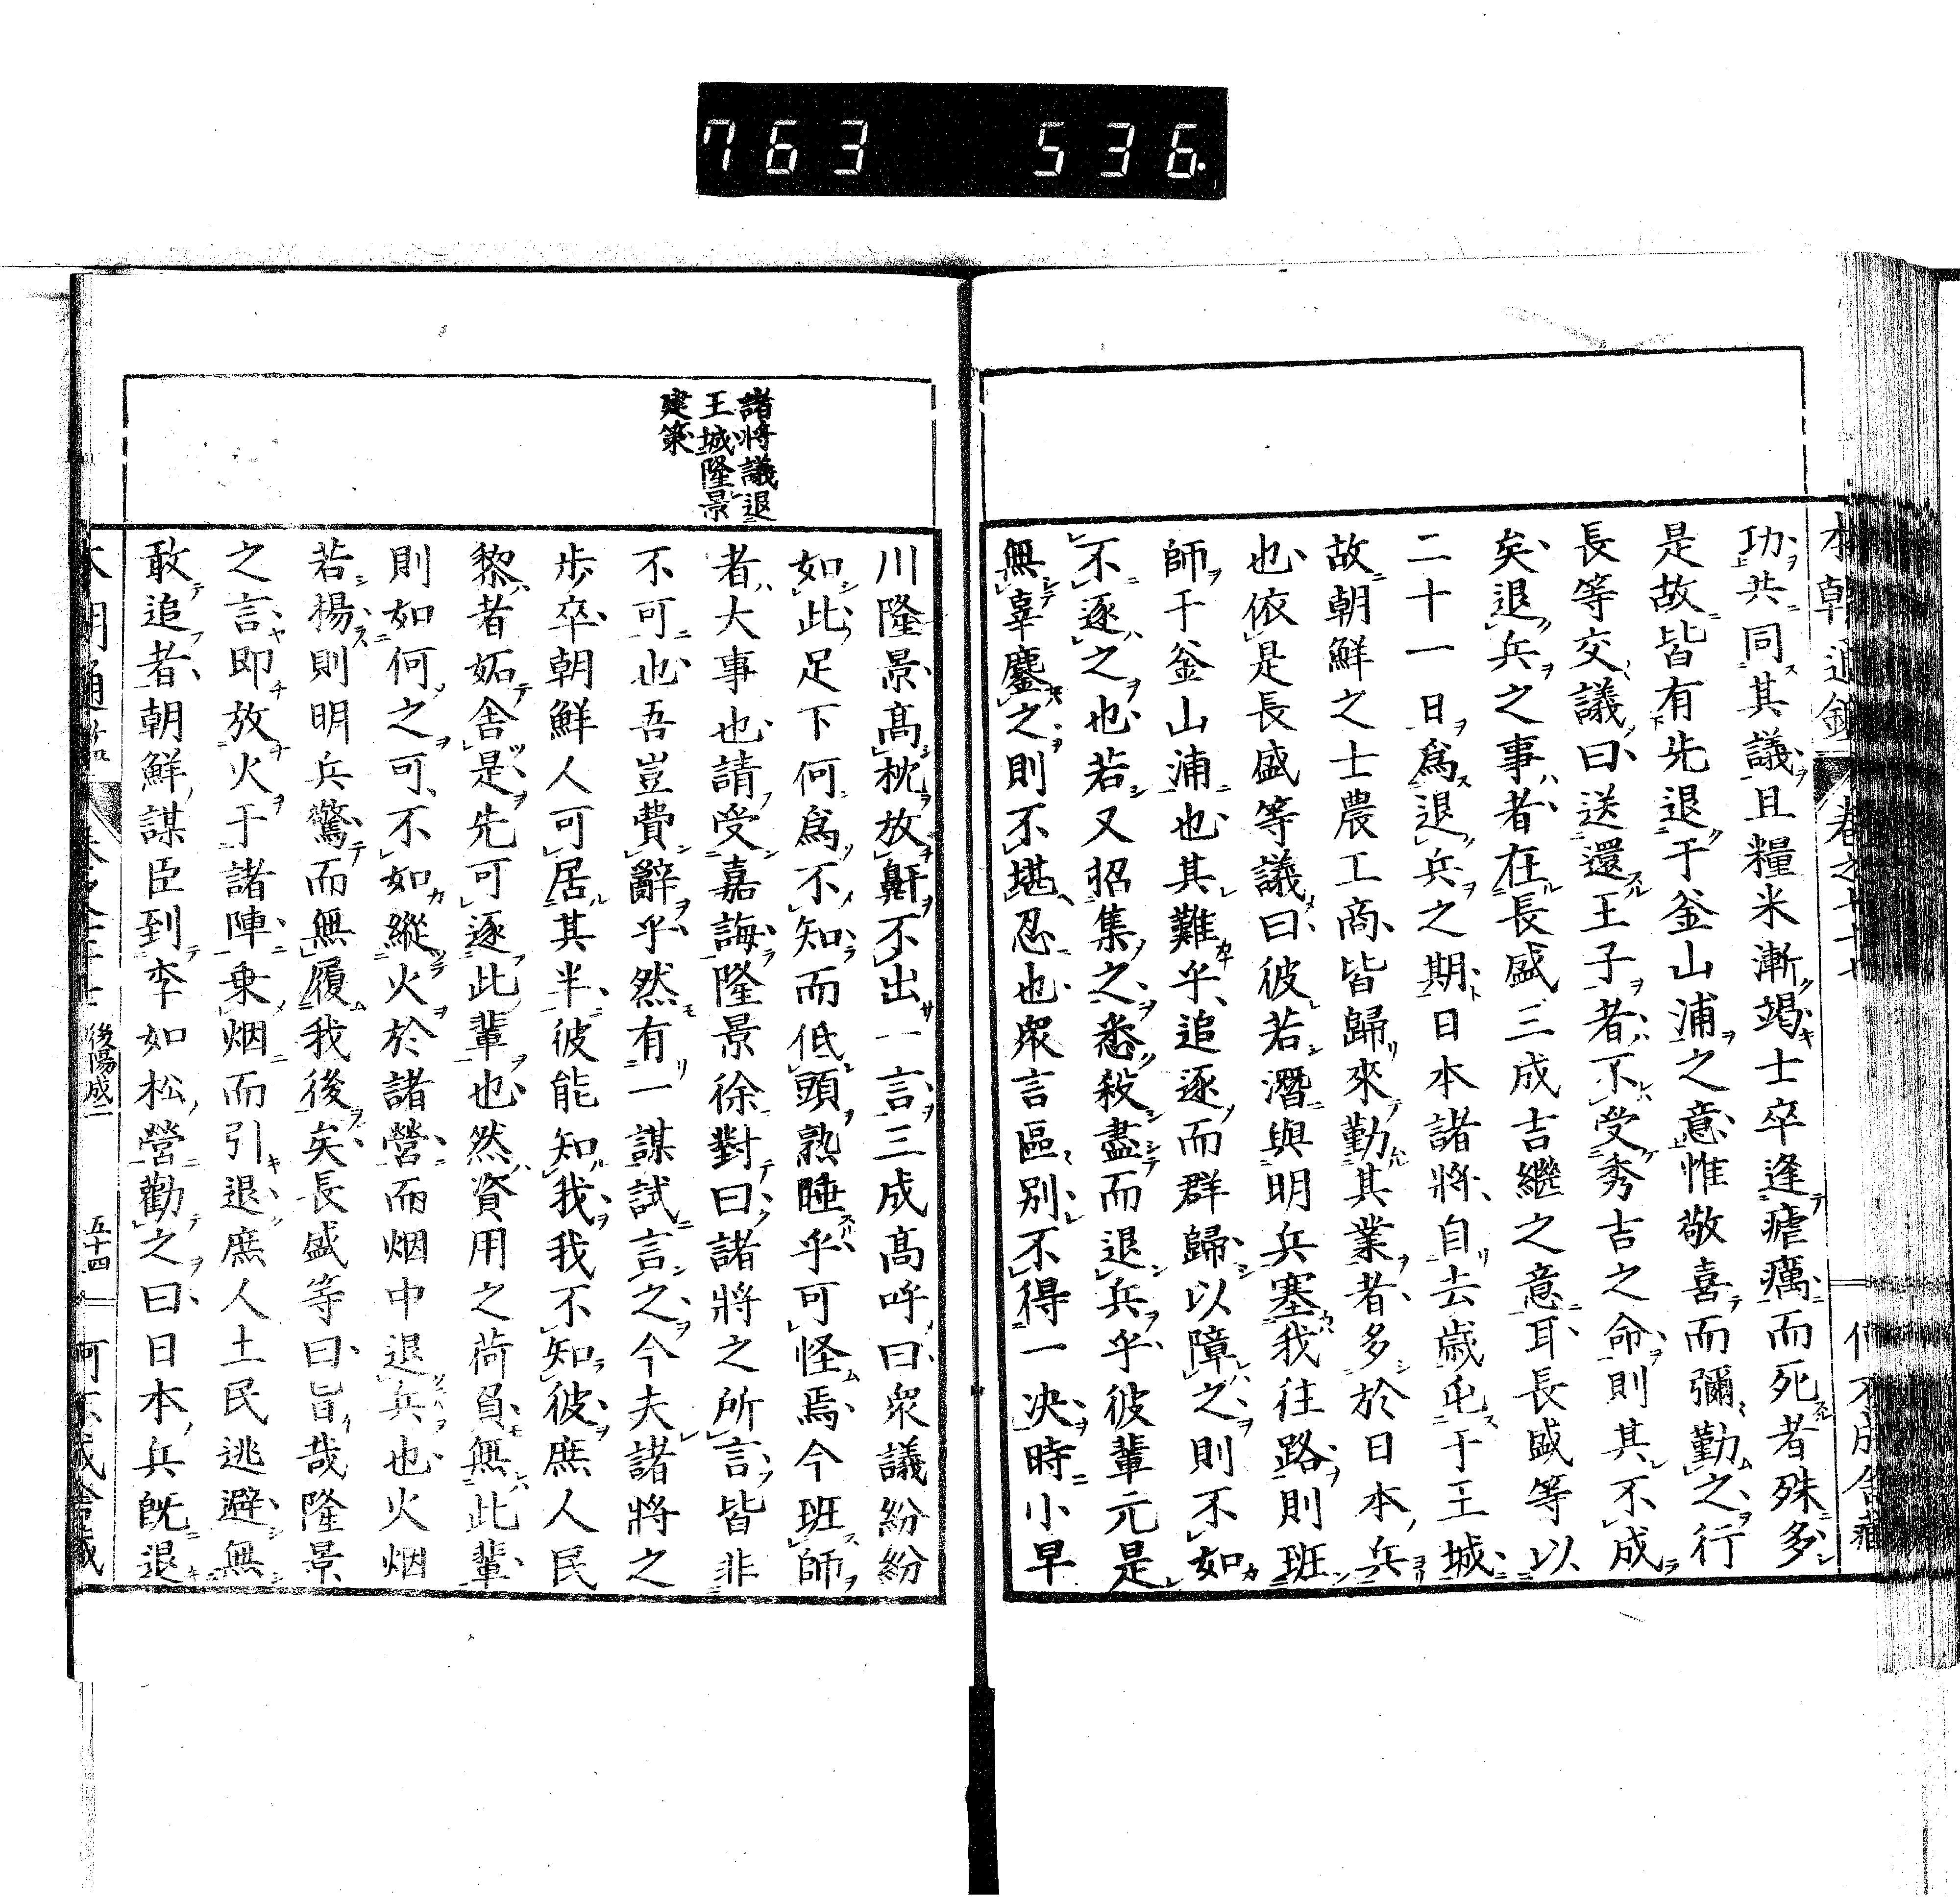 763 536.
功共同其議且糧米漸竭士卒逢瘧癘而死者殊多
是故皆有先退于釜山浦之意惟敬喜而彌勤之行
長等交議曰送還王子者不受秀吉之命則其不成
矣退兵之事者在長盛三成吉繼之意耳長盛等以
二十一日爲退兵之期日本諸將自去歲屯于王城
故朝鮮之士農工商皆歸來勤其業者多於日本兵
也依是長盛等議曰彼若潛與明兵塞我往路則班
師于釜山浦也其難乎追逐而群歸以障之則不如
不逐之也若又招集之悉殺盡而退兵乎彼輩元是
無辜鏖之則不堪忍也衆言區別不得一决時小早
諸將議退
王城隆景
建策
川隆景高枕放鼾不出一言三成高呼曰衆議紛紛
如此足下何爲不知而低頭熟睡乎可怪焉今班師
者大事也請受嘉誨隆景徐對曰諸將之所言皆非
不可也吾豈費辭乎然有一謀試言之今夫諸將之
步卒朝鮮人可居其半彼能知我我不知彼庶人民
黎者姤舍是先可逐此輩也然資用之荷負無此輩
則如何之可不如縱火於諸營而烟中退兵也火烟
若楊則明兵驚而無履我後矣長盛等曰旨哉隆景
之言即放火于諸陣乗烟而引退庶人土民逃避無
敢追者朝鮮謀臣到李如松營勸之曰日本兵既退
後陽成二 五十四